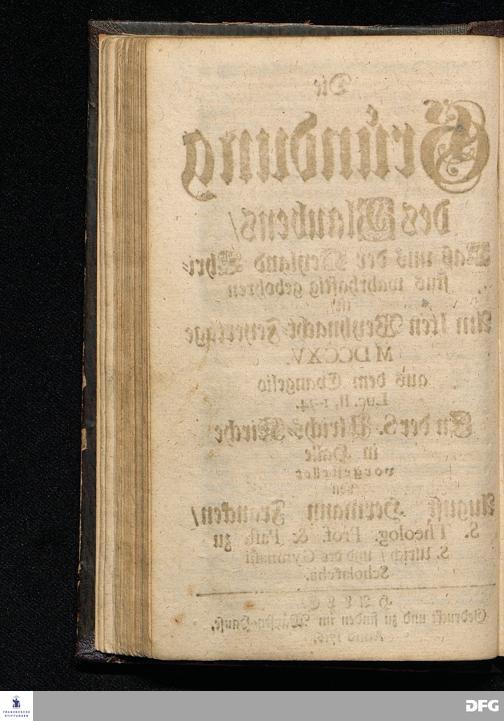 Die
Gründung
des Glaubens/
Daß uns der Heyland Chri-
stus wahrhaftig gebohren
ist/
Am Iten Weyhnacht-Feyertage
MDCCXV.
aus dem Evangelio
Luc. II, 1-14.
In der S. Ulrichs-Kirche
in Halle
vorgestellet
von
August Hermann Francken/
S. Theolog. Prof. & Past. zu
S. Ulrich/ und des Gymnasii
Scholarcha.
HALLE,
Gedruckt und zu finden im Wäysen-Hause,
Anno 1716.
FRANCKESCHE
STIFTUNGEN
DFG